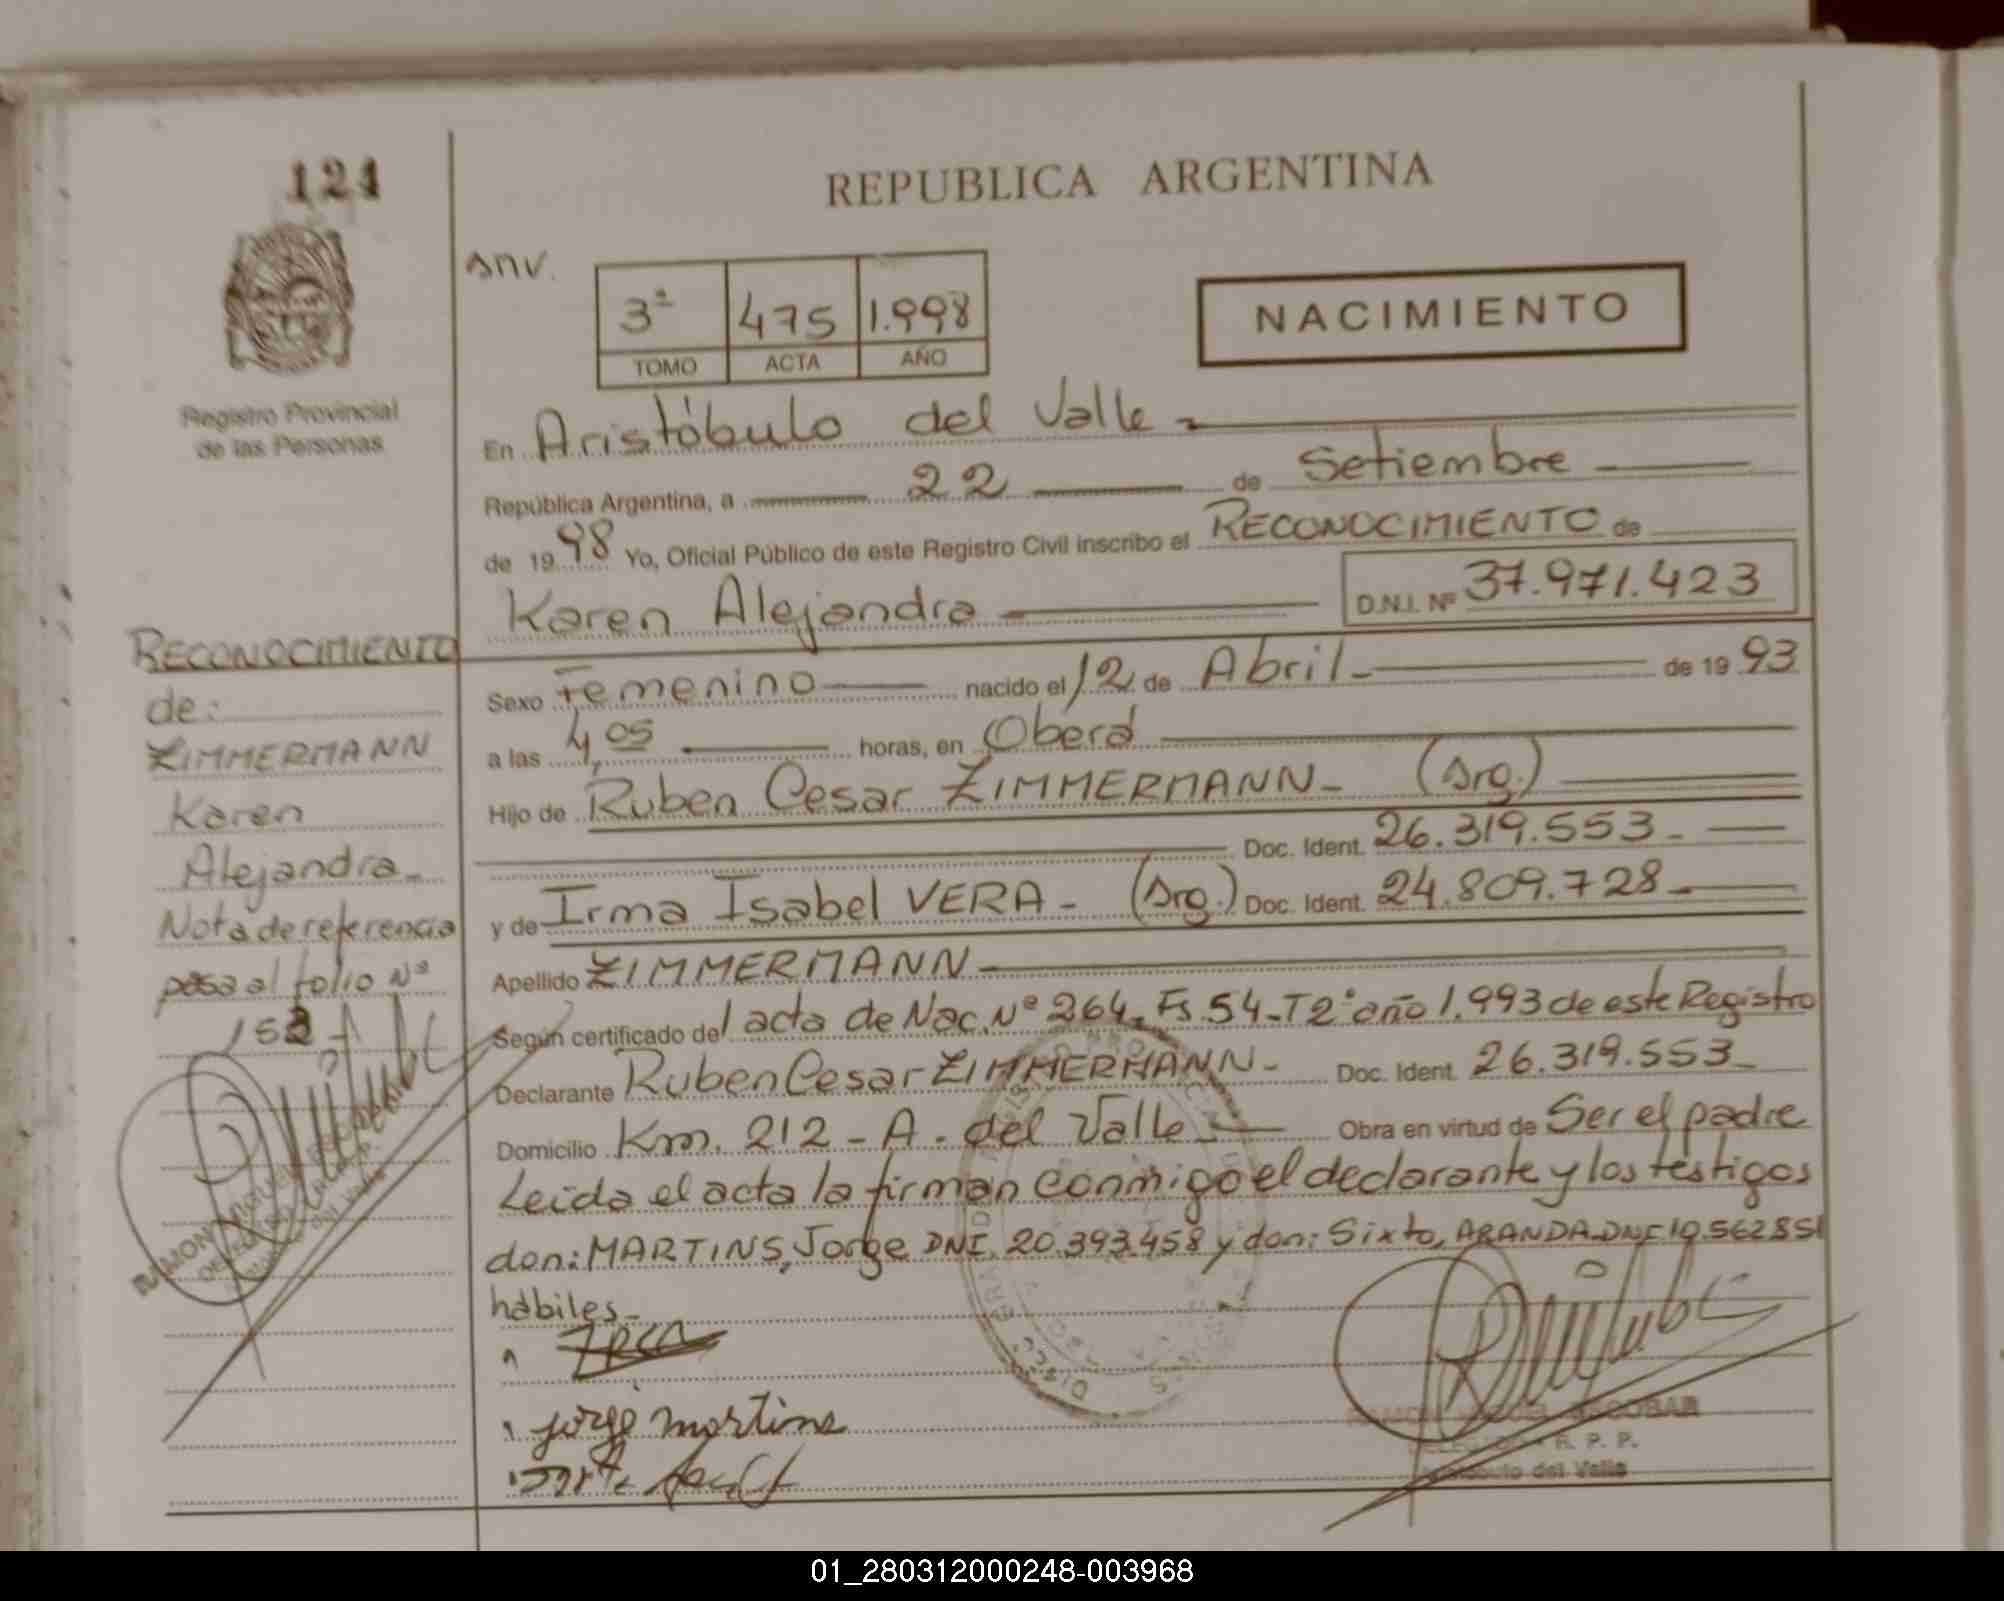 124
REPUBLICA ARGENTINA
snv.
3ª 475 1.998
TOMO ACTA AÑO
NACIMIENTO
Registro Provincial
de las Personas
En Aristóbulo del Valle
República Argentina, a 22 de Setiembre
de 1998 Yo, Oficial Público de este Registro Civil inscribo el RECONOCIMIENTO de
Karen Alejandra D.N.I. Nº 37.971.423
Sexo Femenino nacido el 12 de Abril de 1993
a las 4,05 horas, en Oberá
Hijo de Ruben Cesar ZIMMERMANN (Arg.)
Doc. Ident. 26.319.553
y de Irma Isabel VERA (Arg.) Doc. Ident. 24.809.728
Apellido ZIMMERMANN
Según certificado del acta de Nac. Nº 264. Fs. 54. T 2º año 1.993 de este Registro
Declarante Ruben Cesar ZIMMERMANN Doc. Ident. 26.319.553
Domicilio Km. 212 - A. del Valle Obra en virtud de Ser el padre
Leida el acta la firman conmigo el declarante y los testigos
don: MARTINS, Jorge DNI. 20.393.458 y don: Sixto, ARANDA DNI 10.562851
hábiles
jorge martins
RECONOCIMIENTO
de:
ZIMMERMANN
Karen
Alejandra
Nota de referencia
pasa al folio Nº
RAMON MIGUEL ESCOBAR
DELEGADO R. P. P.
Aristóbulo del Valle
01_280312000248-003968